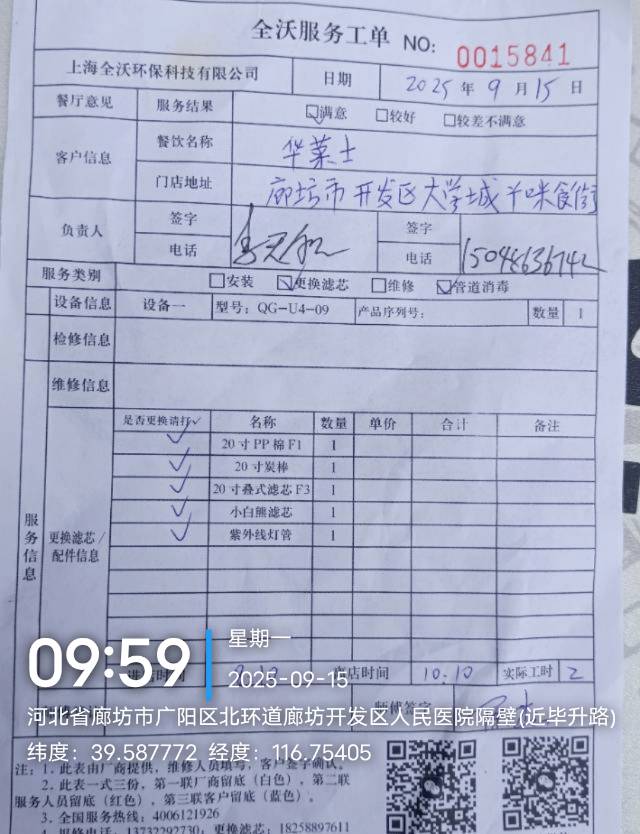 全沃服务工单 NO: 0015841
上海全沃环保科技有限公司 日期 2025年9月15日
餐厅意见 服务结果 ☑满意 □较好 □较差不满意
客户信息 餐饮名称 华莱士
门店地址 廊坊市开发区大学城千味食街
负责人 签字 签字
电话 电话 15048636742
服务类别 □安装 ☑更换滤芯 □维修 ☑管道消毒
设备信息 设备一 型号：QG-U4-09 产品序列号： 数量 1
检修信息
维修信息
服务信息
更换滤芯/配件信息
是否更换请打√ 名称 数量 单价 合计 备注
√ 20寸PP棉F1 1
√ 20寸炭棒 1
√ 20寸叠式滤芯F3 1
√ 小白熊滤芯 1
√ 紫外线灯管 1
离店时间 10:10 实际工时 2
师傅签字
09:59
星期一
2025-09-15
河北省廊坊市广阳区北环道廊坊开发区人民医院隔壁(近毕升路)
纬度：39.587772 经度：116.75405
注：1.此表由厂商提供，维修人员填写，客户签字确认。
2.此表一式三份，第一联厂商留底（白色），第二联
服务人员留底（红色），第三联客户留底（蓝色）。
3.全国服务热线：4006121926
4.报修电话：13732292730；更换滤芯：18258897611